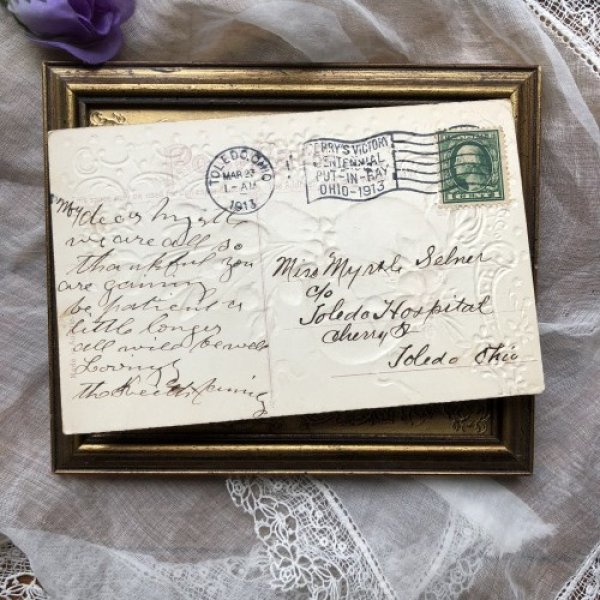 TOLEDO, OHIO
MAR 23
1-AM
1913
PERRY'S VICTORY
CENTENNIAL
PUT-IN-BAY
OHIO-1913
CENTS
My dear Myrtle
we are all so
thankful you
are gaining
be patient a
little longer
all will be well
Loving
Miss Myrtle Selner
c/o
Toledo Hospital
Cherry St
Toledo Ohio